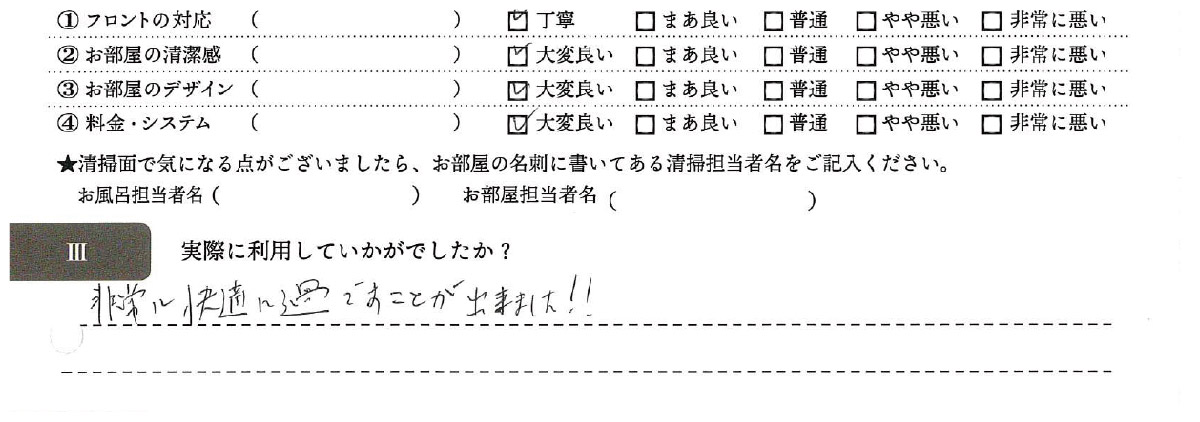 ①フロントの対応 ( ) ☑丁寧 □まあ良い □普通 □やや悪い □非常に悪い
②お部屋の清潔感 ( ) ☑大変良い □まあ良い □普通 □やや悪い □非常に悪い
③お部屋のデザイン ( ) ☑大変良い □まあ良い □普通 □やや悪い □非常に悪い
④料金・システム ( ) ☑大変良い □まあ良い □普通 □やや悪い □非常に悪い
★清掃面で気になる点がございましたら、お部屋の名刺に書いてある清掃担当者名をご記入ください。
お風呂担当者名 ( ) お部屋担当者名 ( )
Ⅲ 実際に利用していかがでしたか？
非常に快適に過ごすことが出来ました!!